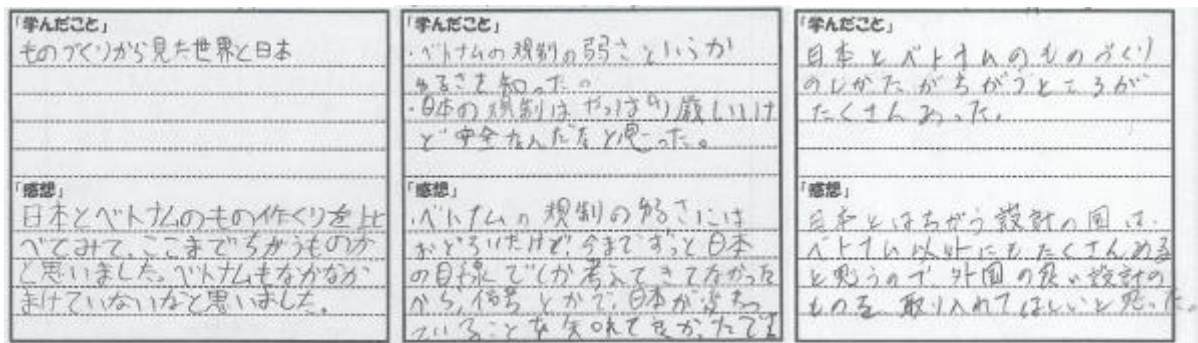 「学んだこと」
ものづくりから見た世界と日本
「感想」
日本とベトナムのもの作くりを比
べてみて、ここまでちがうものか
と思いました。ベトナムもなかなか
まけていないなと思いました。
「学んだこと」
・ベトナムの規制の弱さというか
ゆるさを知った。
・日本の規制はやっぱり厳しいけ
ど安全なんだなと思った。
「感想」
・ベトナムの規制のゆるさには
おどろいたけど、今までずっと日本
の目線でしか考えてきてなかった
から、信号とかで、日本が変わっ
ていることを知れて良かったです
「学んだこと」
日本とベトナムのものづくり
のしかたがちがうところが
たくさんあった。
「感想」
日本とはちがう設計の国は、
ベトナム以外にもたくさんある
と思うので外国の良い設計の
ものを、取り入れてほしいと思った。